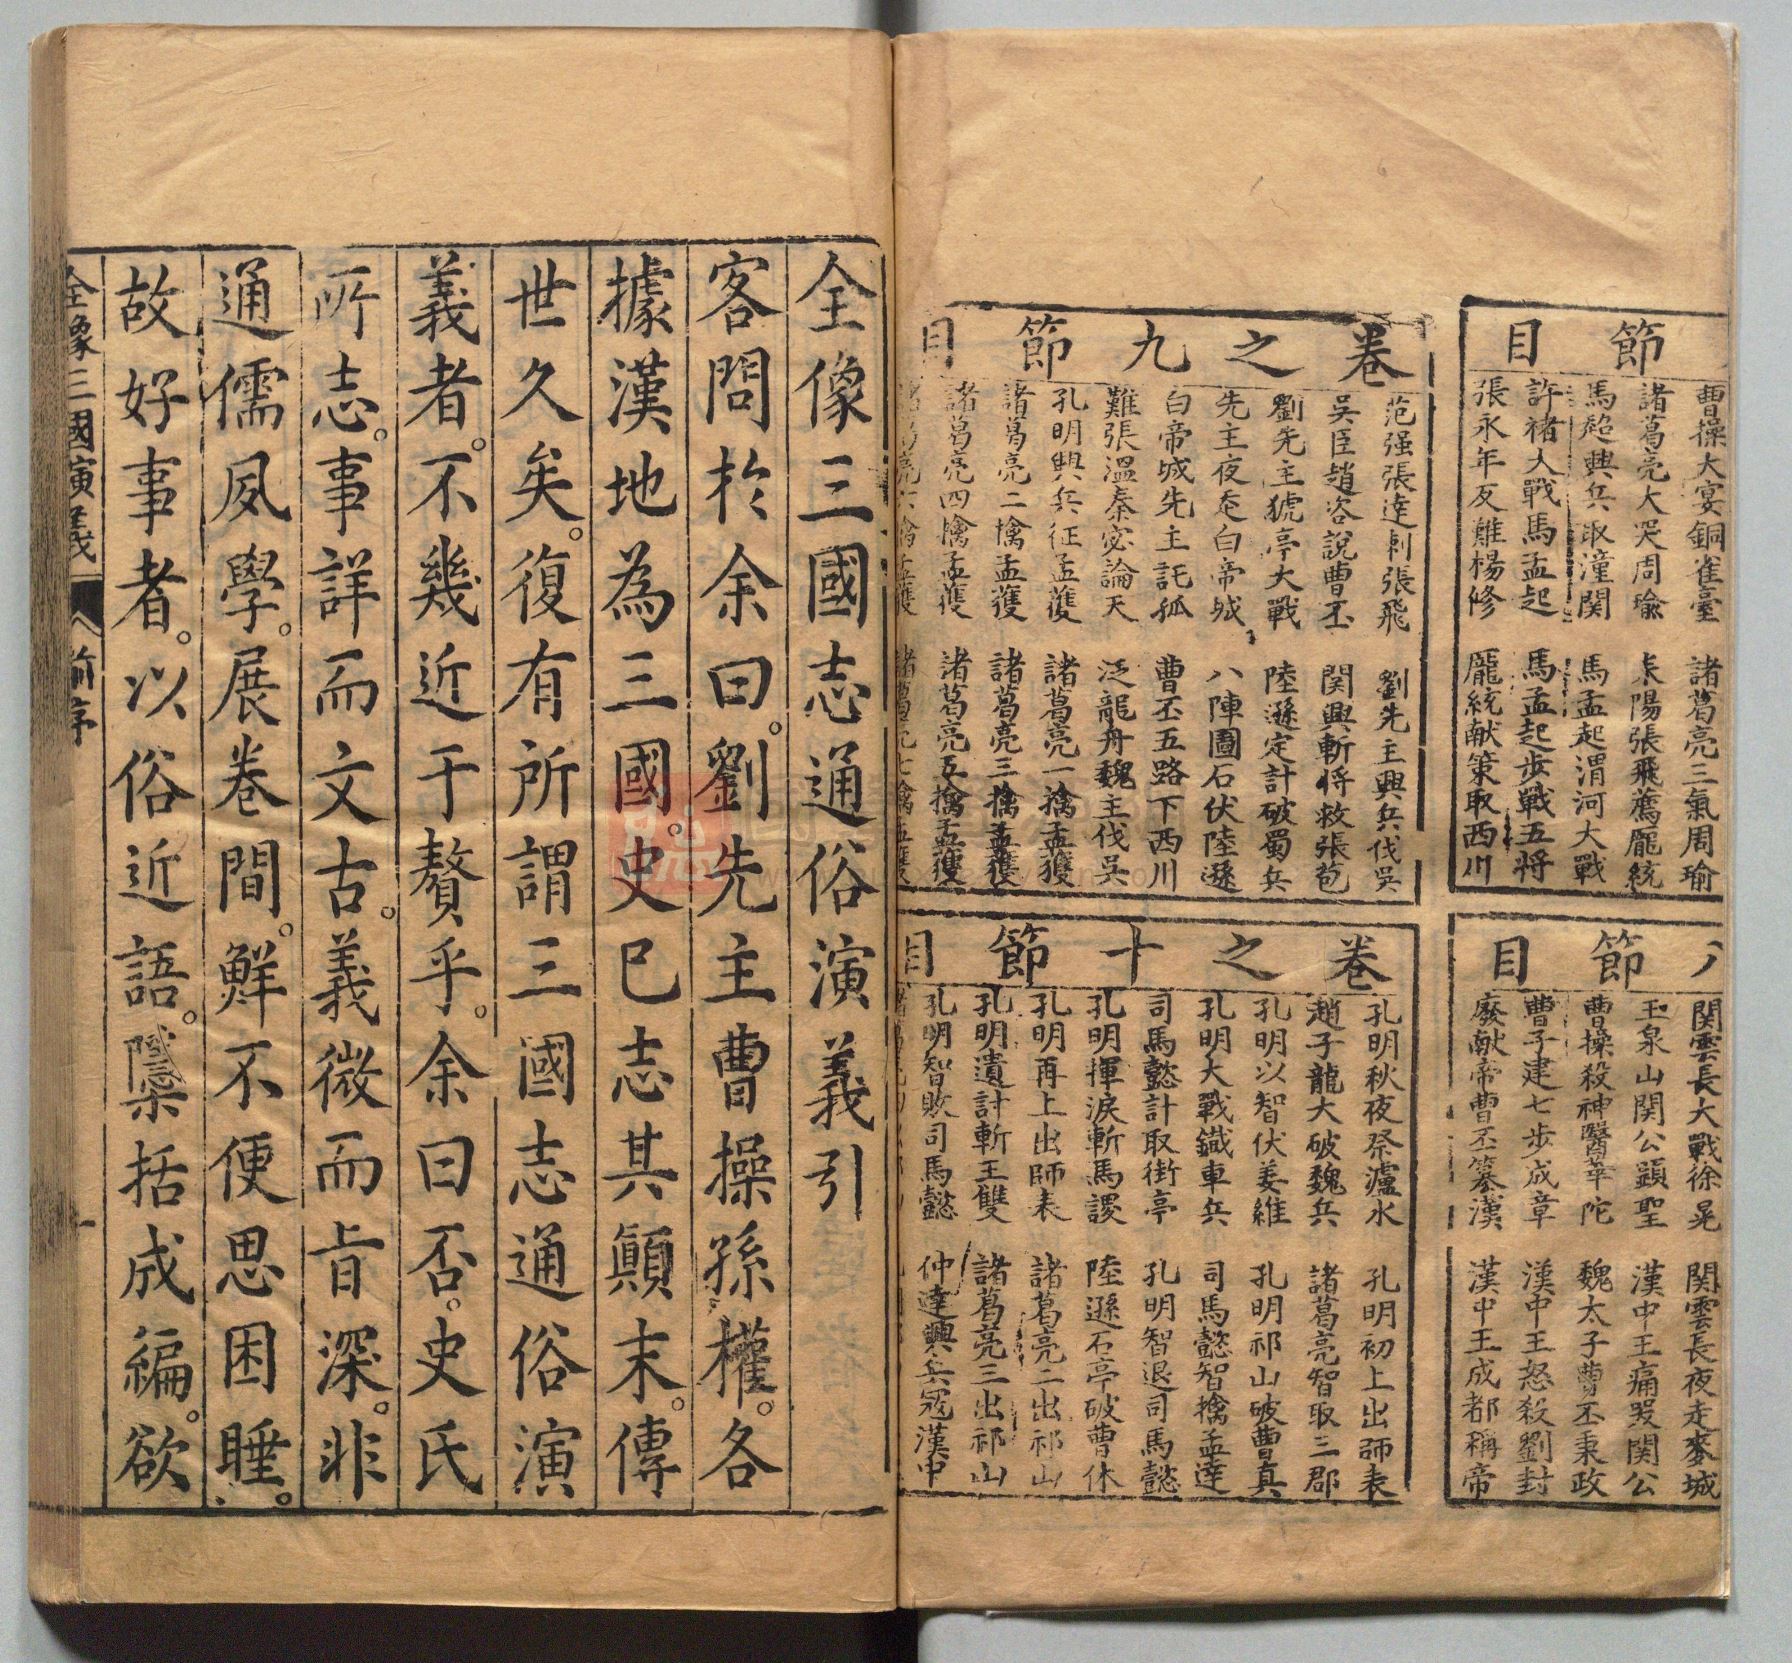 節目
曹操大宴銅雀臺　諸葛亮三氣周瑜
諸葛亮大哭周瑜　耒陽張飛薦龐統
馬超興兵取潼関　馬孟起渭河大戰
許褚大戰馬孟起　馬孟起步戰五將
張永年反難楊修　龐統献策取西川
節目
関雲長大戰徐晃　関雲長夜走麥城
玉泉山関公顕聖　漢中王痛哭関公
曹操殺神醫華陀　魏太子曹丕秉政
曹子建七步成章　漢中王怒殺劉封
廢献帝曹丕篡漢　漢中王成都稱帝
卷之九節目
范强張達刺張飛　劉先主興兵伐吳
吳臣趙咨說曹丕　関興斬將救張苞
劉先主猇亭大戰　陸遜定計破蜀兵
先主夜走白帝城　八陣圖石伏陸遜
白帝城先主託孤　曹丕五路下西川
難張溫秦宓論天　泛龍舟魏主伐吳
孔明興兵征孟獲　諸葛亮一擒孟獲
諸葛亮二擒孟獲　諸葛亮三擒孟獲
諸葛亮四擒孟獲　諸葛亮五擒孟獲
諸葛亮六擒孟獲　諸葛亮七擒孟獲
卷之十節目
孔明秋夜祭瀘水　孔明初上出師表
趙子龍大破魏兵　諸葛亮智取三郡
孔明以智伏姜維　孔明祁山破曹真
孔明大戰鐵車兵　司馬懿智擒孟達
司馬懿計取街亭　孔明智退司馬懿
孔明揮淚斬馬謖　陸遜石亭破曹休
孔明再上出師表　諸葛亮二出祁山
孔明遺計斬王雙　諸葛亮三出祁山
孔明智敗司馬懿　仲達興兵寇漢中
全像三國志通俗演義引
客問於余曰。劉先主曹操孫權。各
據漢地為三國。史已志其顛末。傳
世久矣。復有所謂三國志通俗演
義者。不幾近于贅乎。余曰否。史氏
所志。事詳而文古。義微而旨深。非
通儒夙學。展卷間。鮮不便思困睡。
故好事者。以俗近語。隱栝成編。欲
全像三國演義　前序　一